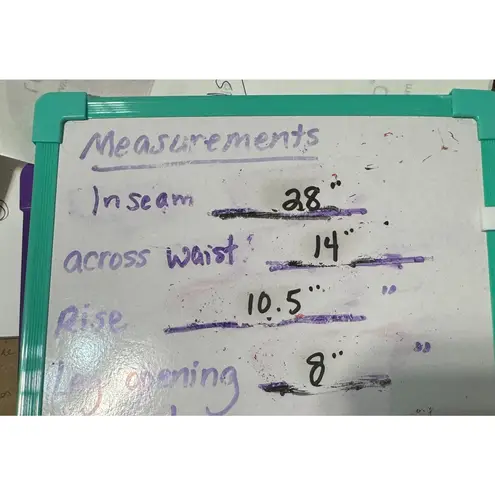 Measurements
Inseam 28"
across waist: 14"
Rise 10.5" "
Leg opening 8" "